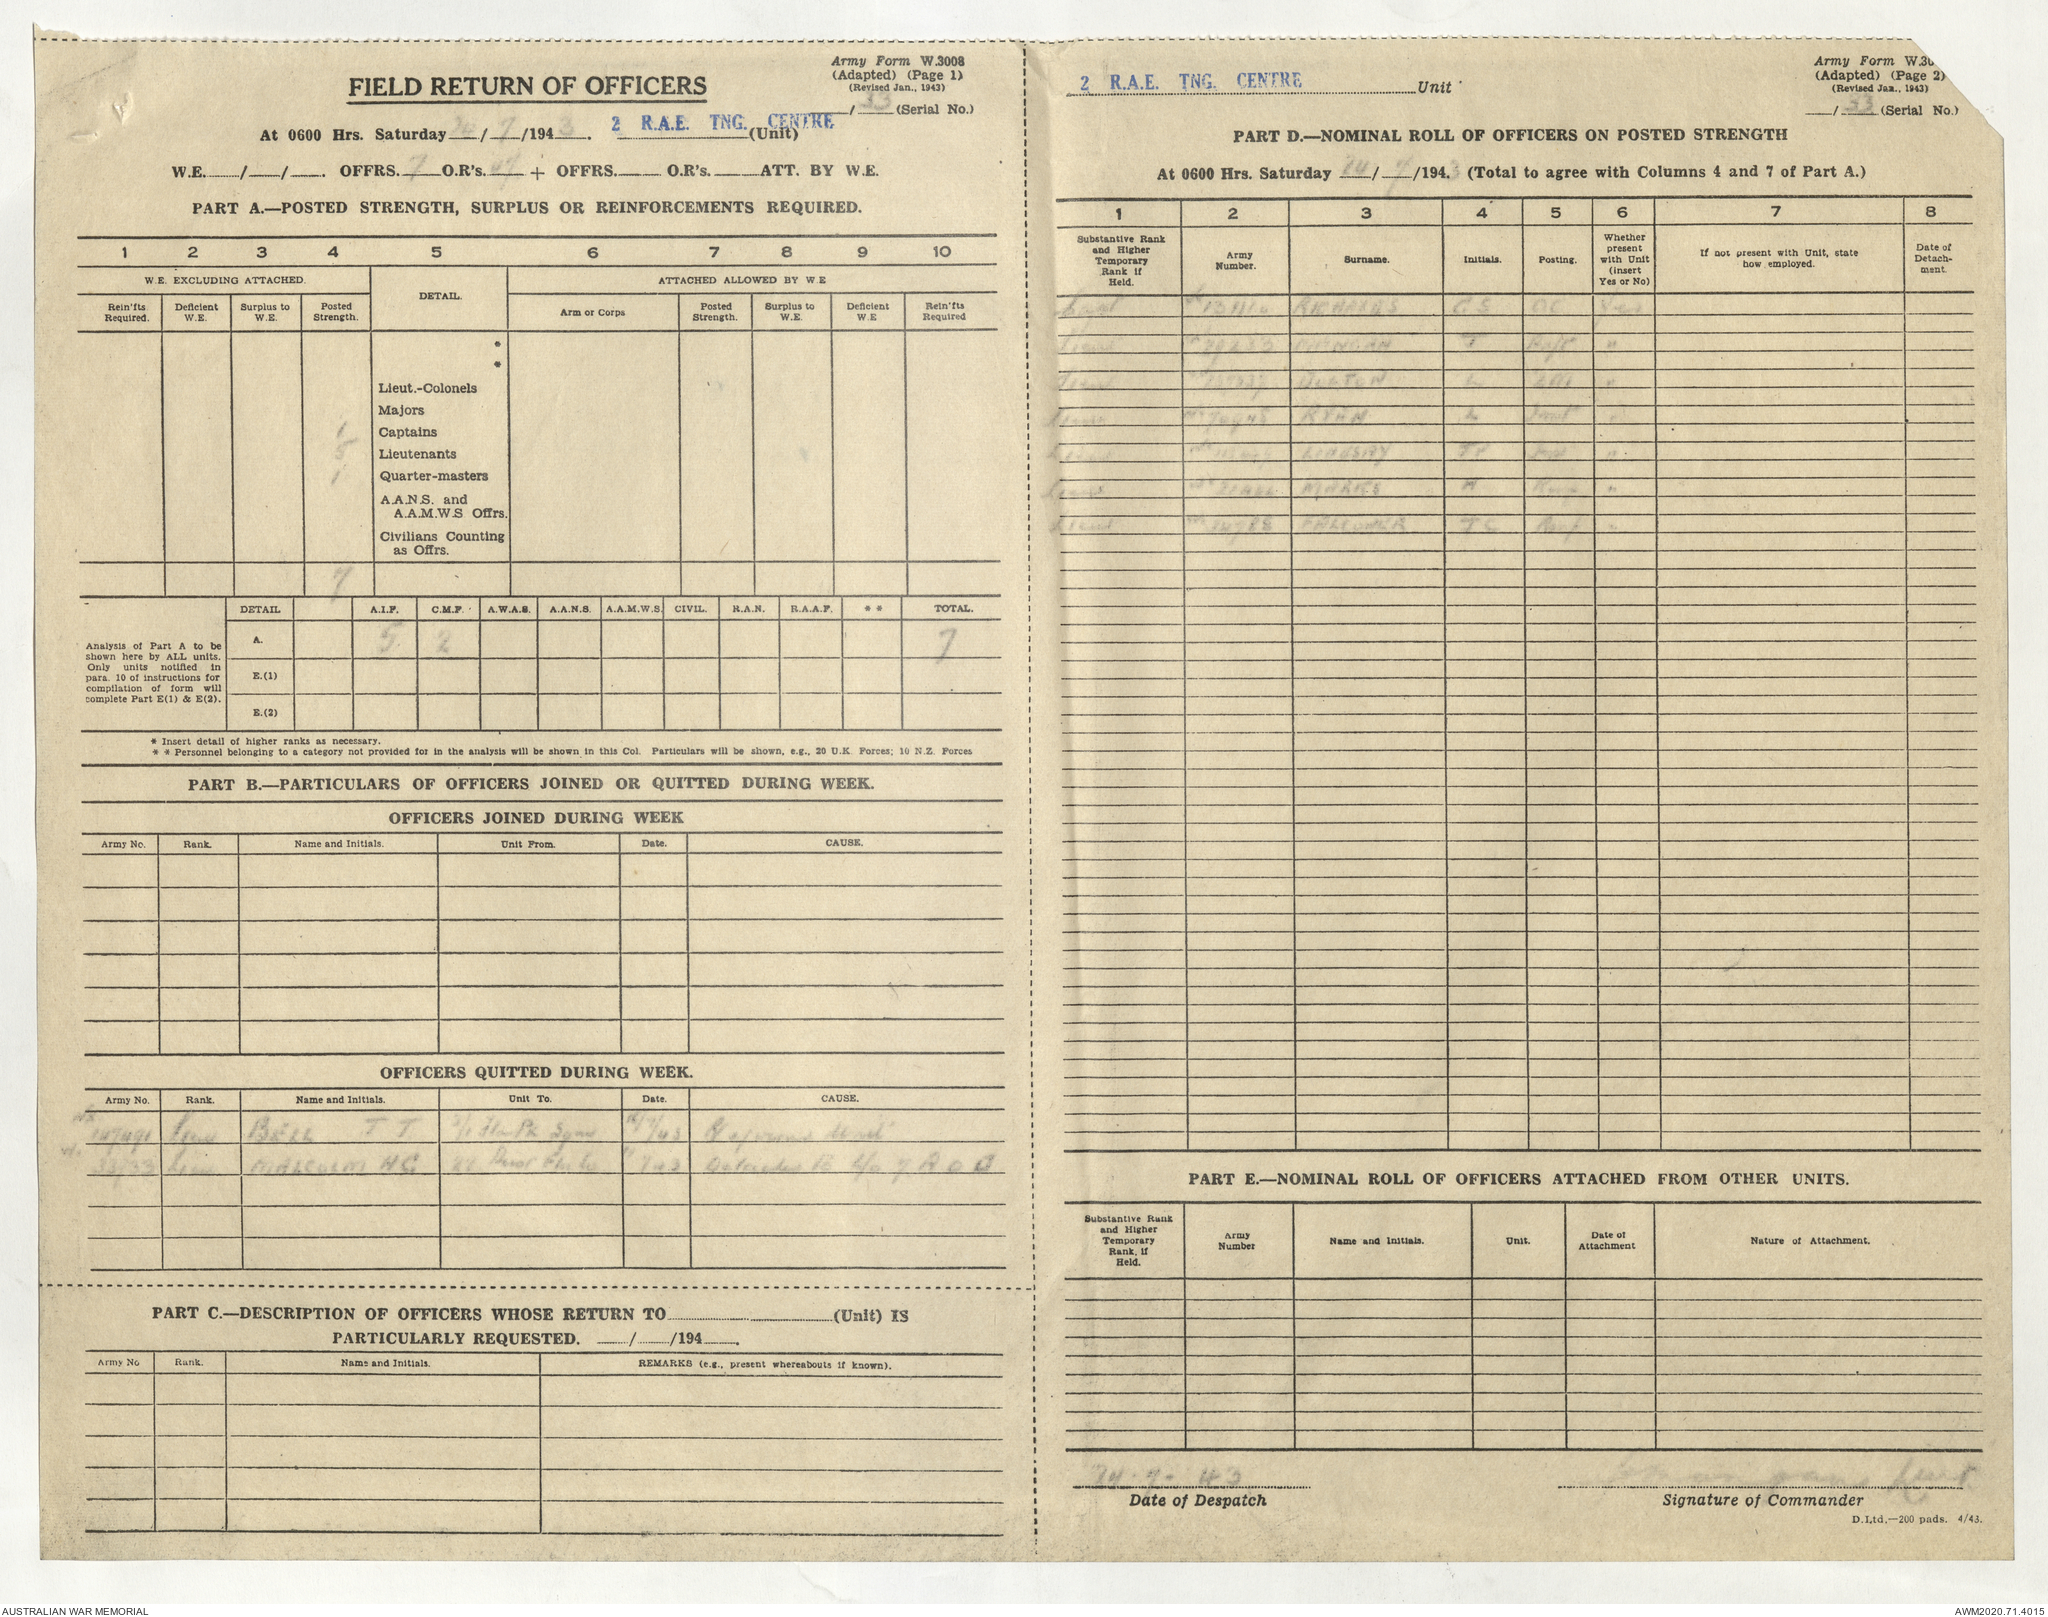 Army Form W.3008
(Adapted) (Page 1)
(Revised Jan., 1943)
FIELD RETURN OF OFFICERS
/ 33 (Serial No.)
At 0600 Hrs. Saturday 24/7/1943. 2 R.A.E. TNG. CENTRE (Unit)
W.E. / / . OFFRS. 7 O.R's. + OFFRS. O.R's. ATT. BY W.E.
PART A.—POSTED STRENGTH, SURPLUS OR REINFORCEMENTS REQUIRED.
1 2 3 4 5 6 7 8 9 10
W.E. EXCLUDING ATTACHED. DETAIL. ATTACHED ALLOWED BY W.E
Rein'fts Required. Deficient W.E. Surplus to W.E. Posted Strength. Arm or Corps Posted Strength. Surplus to W.E. Deficient W.E Rein'fts Required
*
*
Lieut.-Colonels
Majors
1 Captains
5 Lieutenants
1 Quarter-masters
A.A.N.S. and
A.A.M.W.S Offrs.
Civilians Counting
as Offrs.
7
DETAIL A.I.F. C.M.F. A.W.A.S. A.A.N.S. A.A.M.W.S. CIVIL. R.A.N. R.A.A.F. * * TOTAL.
Analysis of Part A to be
shown here by ALL units.
Only units notified in
para. 10 of instructions for
compilation of form will
complete Part E(1) & E(2).
A. 5 2 7
E.(1)
E.(2)
* Insert detail of higher ranks as necessary.
* * Personnel belonging to a category not provided for in the analysis will be shown in this Col. Particulars will be shown, e.g., 20 U.K. Forces; 10 N.Z. Forces
PART B.—PARTICULARS OF OFFICERS JOINED OR QUITTED DURING WEEK.
OFFICERS JOINED DURING WEEK
Army No. Rank. Name and Initials. Unit From. Date. CAUSE.
OFFICERS QUITTED DURING WEEK.
Army No. Rank. Name and Initials. Unit To. Date. CAUSE.
147491 Lieut BELL T T
Lieut MALCOLM H G
PART C.—DESCRIPTION OF OFFICERS WHOSE RETURN TO (Unit) IS
PARTICULARLY REQUESTED. / /194 .
Army No Rank. Name and Initials. REMARKS (e.g., present whereabouts if known).
Army Form W.30
(Adapted) (Page 2)
(Revised Jan., 1943)
2 R.A.E. TNG. CENTRE Unit
/ 33 (Serial No.)
PART D.—NOMINAL ROLL OF OFFICERS ON POSTED STRENGTH
At 0600 Hrs. Saturday 24/7/1943 (Total to agree with Columns 4 and 7 of Part A.)
1 2 3 4 5 6 7 8
Substantive Rank and Higher Temporary Rank if Held. Army Number. Surname. Initials. Posting. Whether present with Unit (insert Yes or No) If not present with Unit, state how employed. Date of Detachment.
Capt RICHARDS Yes
Lieut T "
Lieut BURTON "
Lieut RYAN L "
Lieut LINDSAY "
Lieut MARKS "
Lieut FALCONER "
PART E.—NOMINAL ROLL OF OFFICERS ATTACHED FROM OTHER UNITS.
Substantive Rank and Higher Temporary Rank, if Held. Army Number Name and Initials. Unit. Date of Attachment Nature of Attachment.
24-7-43 Lieut
Date of Despatch Signature of Commander
D.Ltd.—200 pads. 4/43.
AUSTRALIAN WAR MEMORIAL AWM2020.71.4015